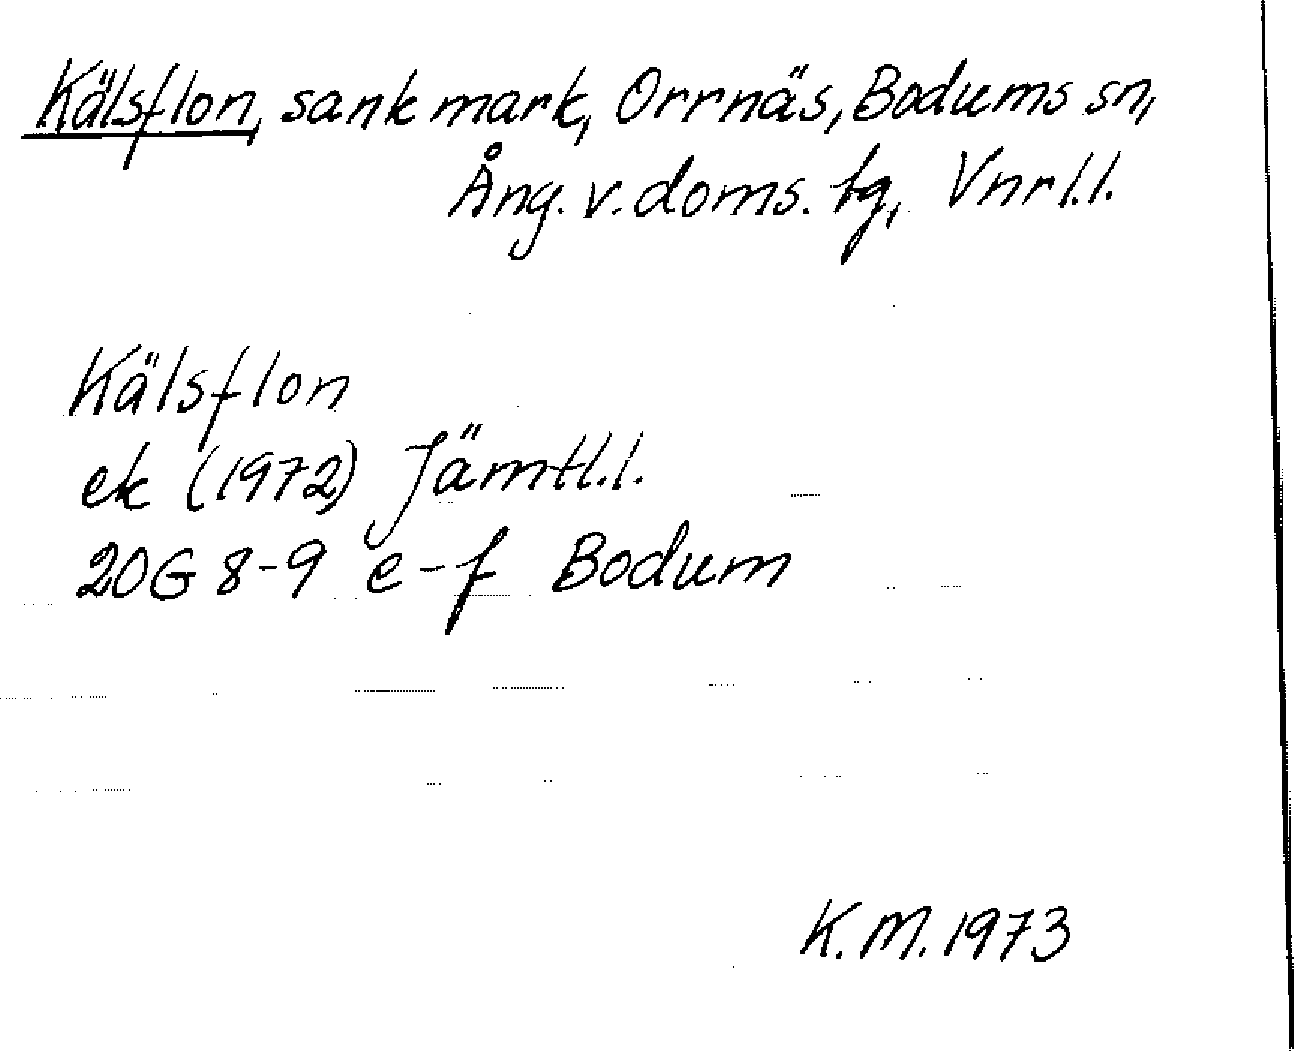 Kälsflon, sank mark, Orrnäs, Bodums sn,
Ång. v. doms. tg, Vnrl.l.
Kälsflon
ek (1972) Jämtl.l.
20G 8-9 e-f Bodum
K.M. 1973